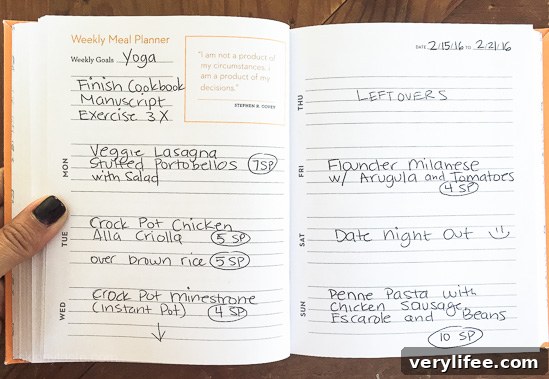 Weekly Meal Planner
Weekly Goals Yoga
Finish Cookbook
Manuscript
Exercise 3X
"I am not a product of
my circumstances. I
am a product of my
decisions."
STEPHEN R. COVEY
MON
Veggie Lasagna
Stuffed Portobellos 7 SP
with Salad
TUE
Crock Pot Chicken
Alla Criolla 5 SP
over brown rice 5 SP
WED
Crock Pot Minestrone
(instant Pot) 4 SP
DATE 2/15/16 TO 2/21/16
THU
LEFTOVERS
FRI
Flounder Milanese
w/ Arugula and Tomatoes
4 SP
SAT
Date night Out
SUN
Penne Pasta with
Chicken Sausage
Escarole and Beans
10 SP
verylifee.com